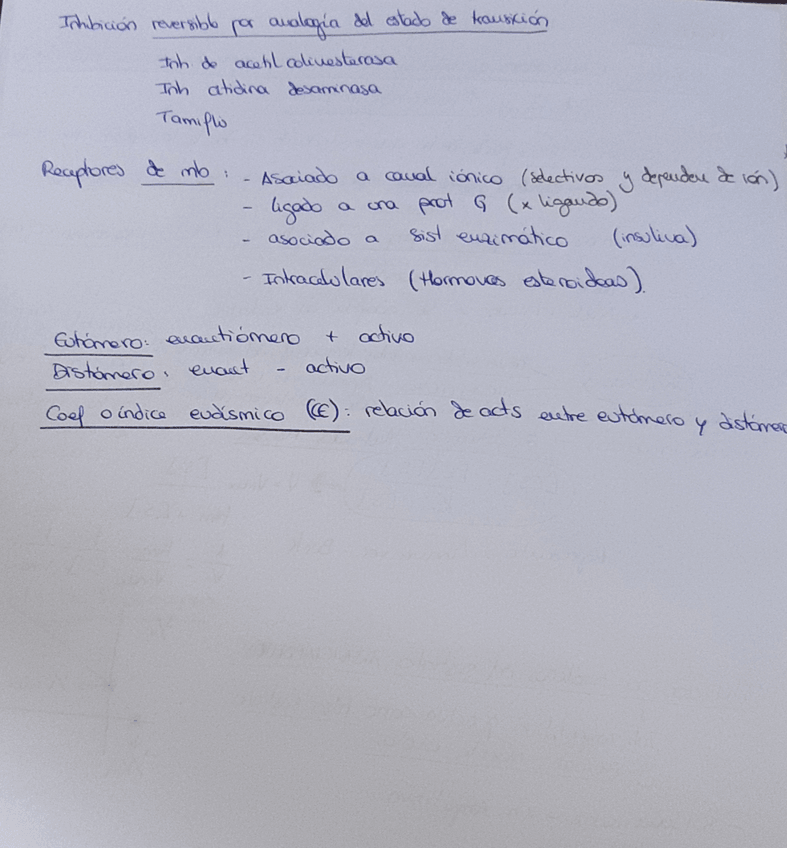 Inhibición reversible por analogía del estado de transición
Inh de acetil colinesterasa
Inh citidina desaminasa
Tamiflú
Receptores de mb: - Asociado a canal iónico (selectivos y dependen de ión)
- ligado a una prot G (x ligando)
- asociado a sist enzimático (insulina)
- Intracelulares (Hormonas esteroideas).
Eutómero: enantiómero + activo
Distómero: enant - activo
Coef o índice eudísmico (CE): relación de acts entre eutómero y distómero